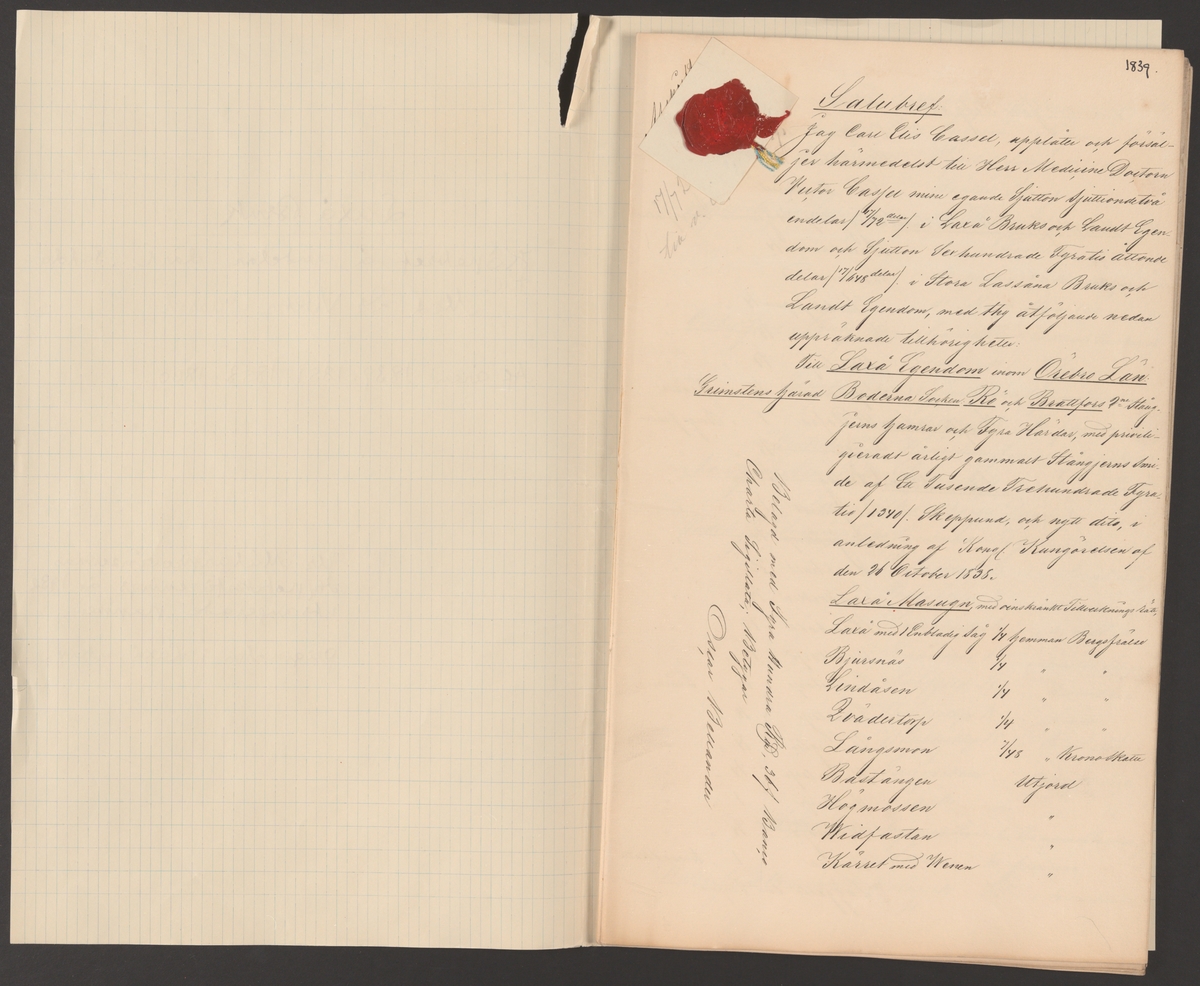 1839.
Afskrift
17/72
Salubref:
Jag Carl Elis Cassel, upplåter och försäl-
jer härmedelst till Herr Medicine Doctorn
Victor Cassel mine egande Sjutton Sjuttiondetvå
endelar /17/72 delar/. i Laxå Bruks och Landt Egen-
dom och Sjutton Sexhundrade Fyratio åttonde
delar /17/648 delar/. i Stora Lassåna Bruks och
Landt Egendom, med thy åtföljande nedan
uppräknade tillhörigheter:
Till Laxå Egendom inom Örebro Län.
Grimstens härad Boderna Socken Rö och Brattefors 2ne Stång-
jerns hamrar och Fyra Härdar, med privile-
gieradt årligt gammalt Stångjerns Smi-
de af Ett Tusende Trehundrade Fyra-
tio /1340/. Skeppund, och nytt dito, i
anledning af Kongl Kungörelsen af
den 26 October 1838.
Laxå Masugn, med oinskränkt Tillverknings rätt,
Laxå med 1 Enbladig Såg 1/4 hemman Bergsfrälse
Bjursnäs 1/4 " "
Lindåsen 1/4 " "
Qvädertorp 1/4 " "
Långsmon 7/48 " Krono Skatte
Båstången Utjord
Högmossen "
Widfastan "
Kärret med Wenen "
Belagd med Fyra Hundra Rd. 36/ Banco
Charta Sigillata; Betygar
Oscar